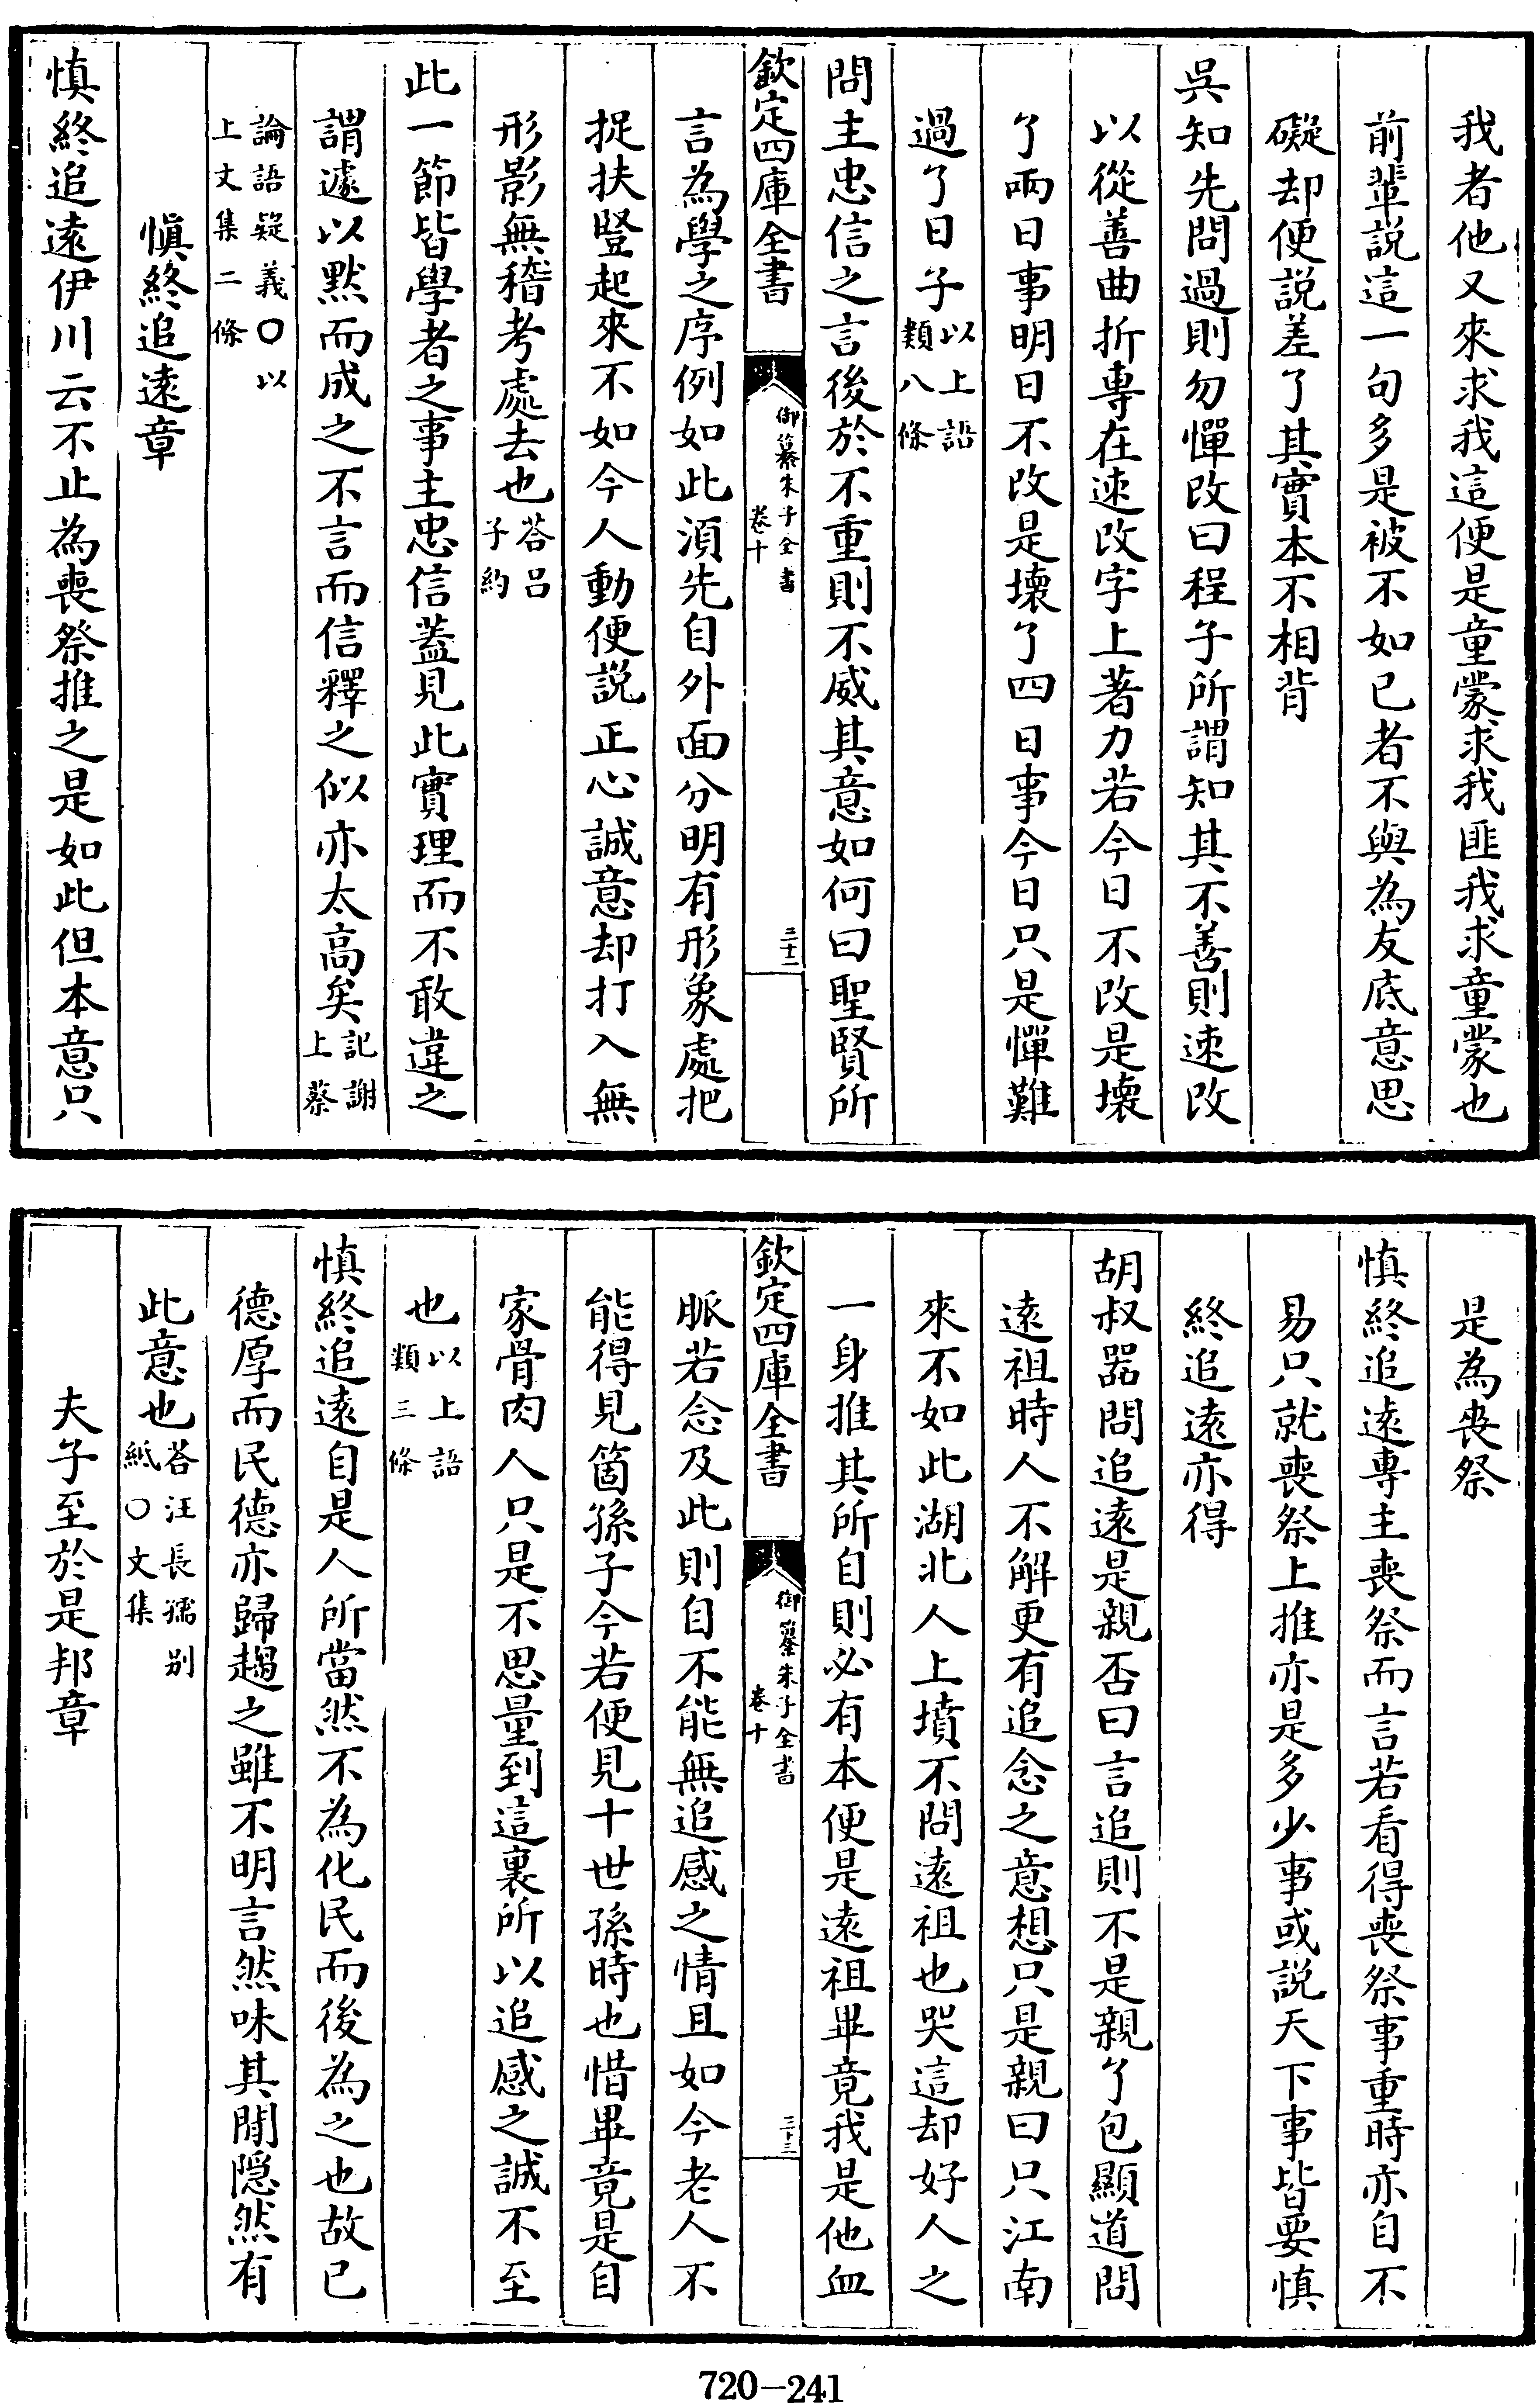 我者他又來求我這便是童蒙求我匪我求童蒙也
前輩説這一句多是被不如已者不與為友底意思
礙却便説差了其實本不相背
吳知先問過則勿憚改曰程子所謂知其不善則速改
以從善曲折專在速改字上著力若今日不改是壞
了兩日事明日不改是壞了四日事今日只是憚難
過了日子以上語類八條
問主忠信之言後於不重則不威其意如何曰聖賢所
欽定四庫全書
御纂朱子全書
卷十
三十二
言為學之序例如此須先自外面分明有形象處把
捉扶豎起來不如今人動便説正心誠意却打入無
形影無稽考處去也荅呂子約
此一節皆學者之事主忠信蓋見此實理而不敢違之
謂遽以黙而成之不言而信釋之似亦太高矣記謝上蔡
論語疑義○以上文集二條
慎終追逺章
慎終追逺伊川云不止為喪祭推之是如此但本意只
是為喪祭
慎終追逺專主喪祭而言若看得喪祭事重時亦自不
易只就喪祭上推亦是多少事或説天下事皆要慎
終追逺亦得
胡叔器問追逺是親否曰言追則不是親了包顯道問
逺祖時人不解更有追念之意想只是親曰只江南
來不如此湖北人上墳不問逺祖也哭這却好人之
一身推其所自則必有本便是逺祖畢竟我是他血
欽定四庫全書
御纂朱子全書
卷十
三十三
脈若念及此則自不能無追感之情且如今老人不
能得見箇孫子今若便見十世孫時也惜畢竟是自
家骨肉人只是不思量到這裏所以追感之誠不至
也以上語類三條
慎終追逺自是人所當然不為化民而後為之也故已
德厚而民德亦歸趨之雖不明言然味其間隠然有
此意也荅汪長孺别紙○文集
夫子至於是邦章
720-241